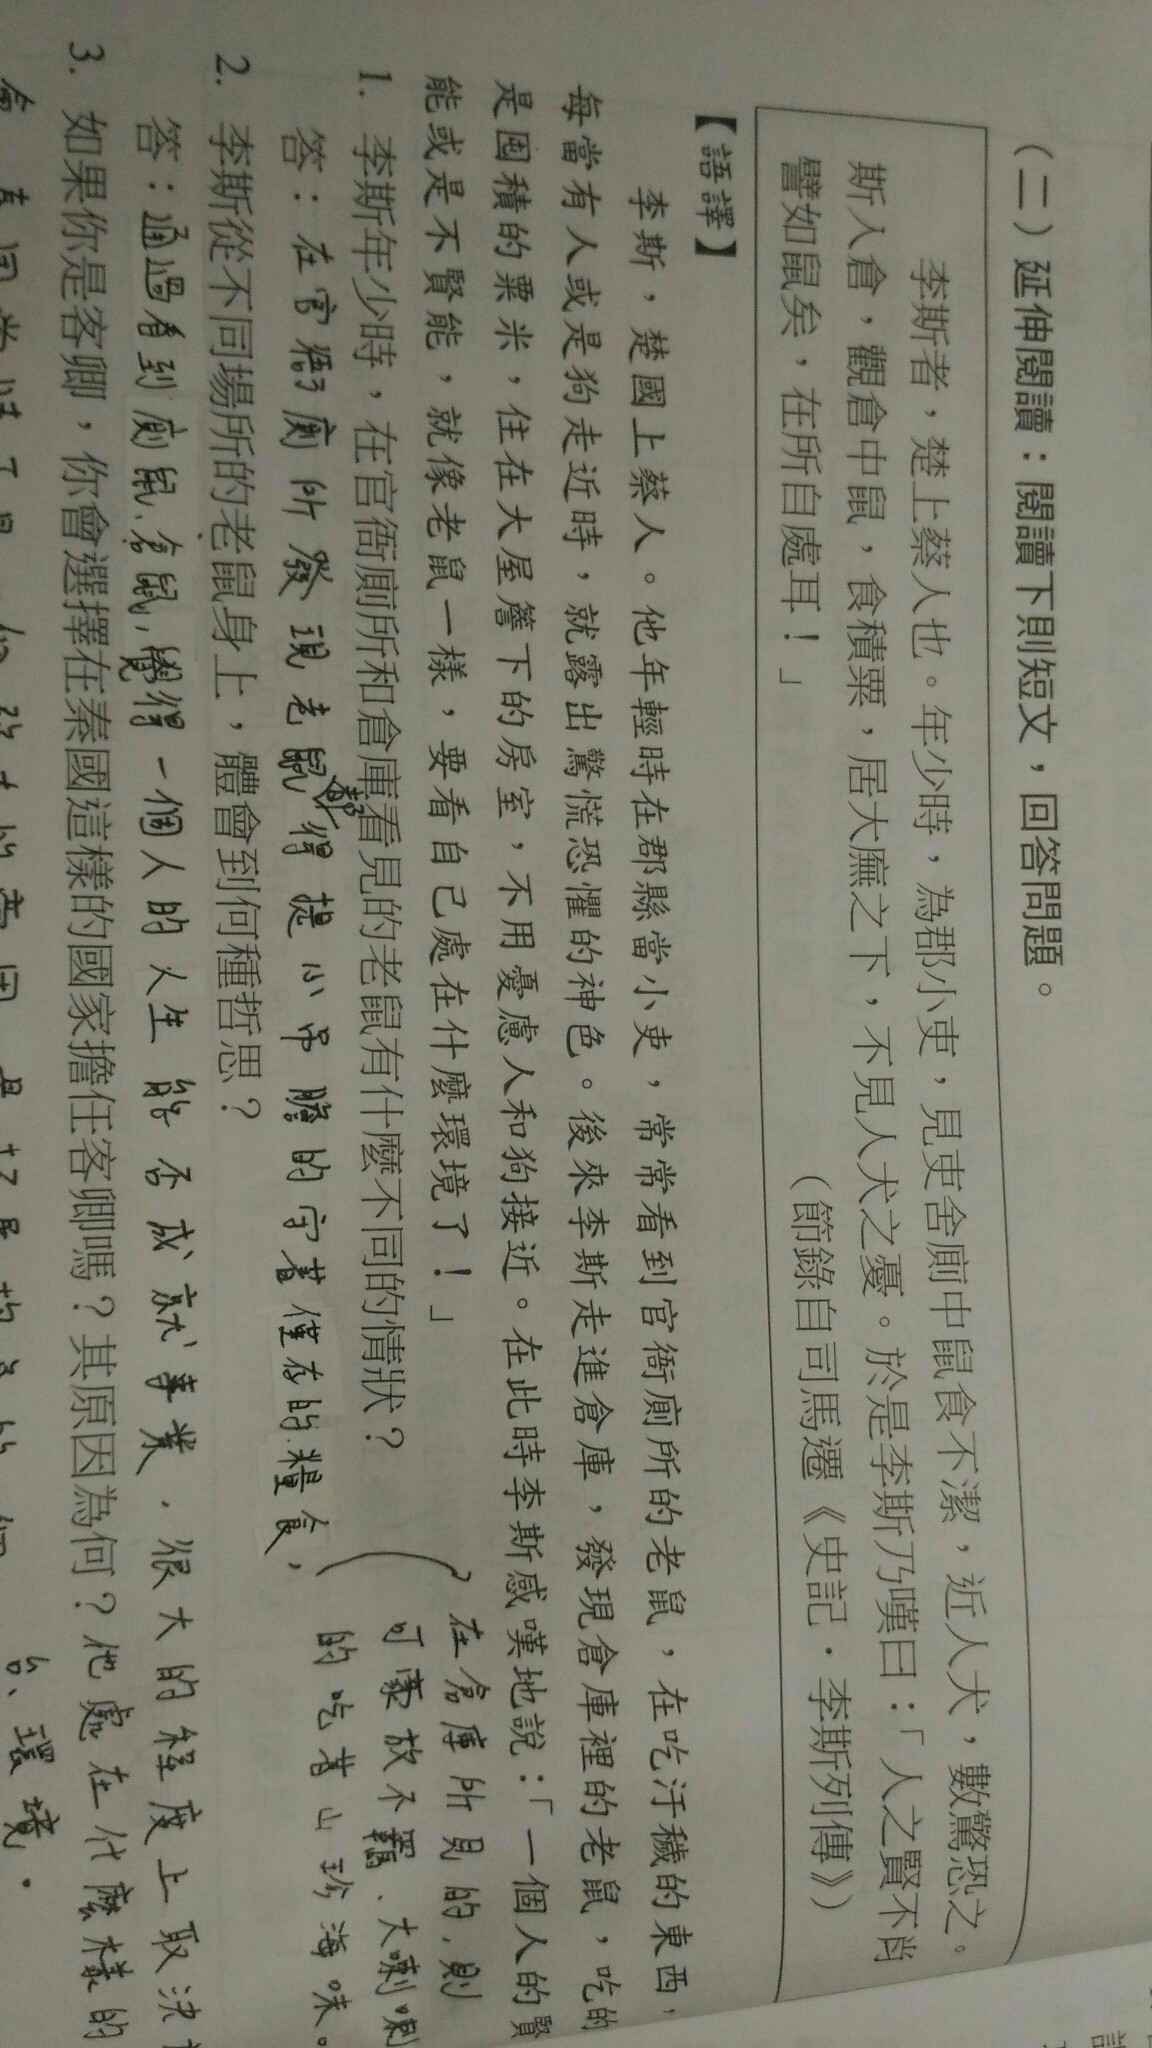 （二）延伸閱讀：閱讀下則短文，回答問題。
李斯者，楚上蔡人也。年少時，為郡小吏，見吏舍廁中鼠食不潔，近人犬，數驚恐之。
斯入倉，觀倉中鼠，食積粟，居大廡之下，不見人犬之憂。於是李斯乃嘆曰：「人之賢不肖
譬如鼠矣，在所自處耳！」
（節錄自司馬遷《史記．李斯列傳》）
【語譯】
李斯，楚國上蔡人。他年輕時在郡縣當小吏，常常看到官衙廁所的老鼠，在吃汙穢的東西，
每當有人或是狗走近時，就露出驚慌恐懼的神色。後來李斯走進倉庫，發現倉庫裡的老鼠，吃的
是囤積的粟米，住在大屋簷下的房室，不用憂慮人和狗接近。在此時李斯感嘆地說：「一個人的賢
能或是不賢能，就像老鼠一樣，要看自己處在什麼環境了！」
1. 李斯年少時，在官衙廁所和倉庫看見的老鼠有什麼不同的情狀？
答：在官衙廁所發現老鼠都得提心吊膽的守著僅存的糧食，
在倉庫所見的，則
可豪放不羈、大喇喇
的吃著山珍海味。
2. 李斯從不同場所的老鼠身上，體會到何種哲思？
答：通過看到廁鼠、倉鼠，覺得一個人的人生能否成就事業，很大的程度上取決
他處在什麼樣的
環境。
3. 如果你是客卿，你會選擇在秦國這樣的國家擔任客卿嗎？其原因為何？